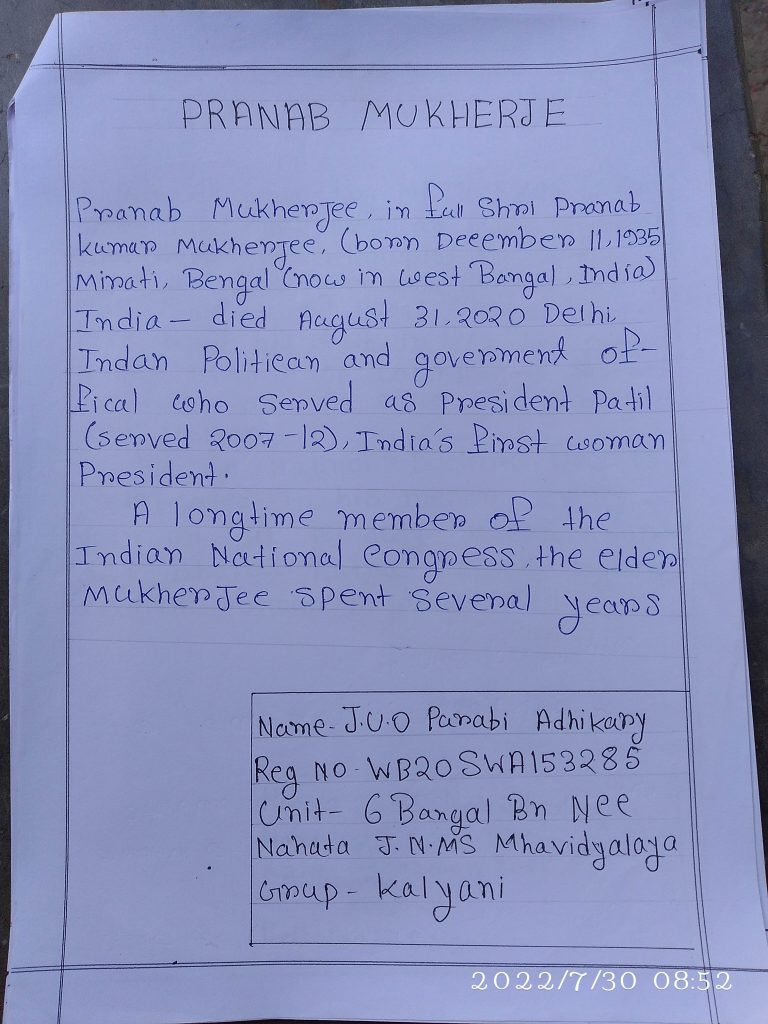 PRANAB MUKHERJE
Pranab Mukherjee, in full Shri Pranab
kumar Mukherjee, (born December 11, 1935
Mirati, Bengal (now in west Bangal, India)
India - died August 31, 2020 Delhi
Indan Politican and goverment of-
fical who served as President Patil
(served 2007-12), India's first woman
President.
A longtime member of the
Indian National Congress, the elder
Mukherjee spent several years
Name- J.U.O Parabi Adhikary
Reg No - WB20SWA153285
Unit- 6 Bangal Bn Ncc
Nahata J.N.MS Mhavidyalaya
Group - Kalyani
2022/7/30 08:52